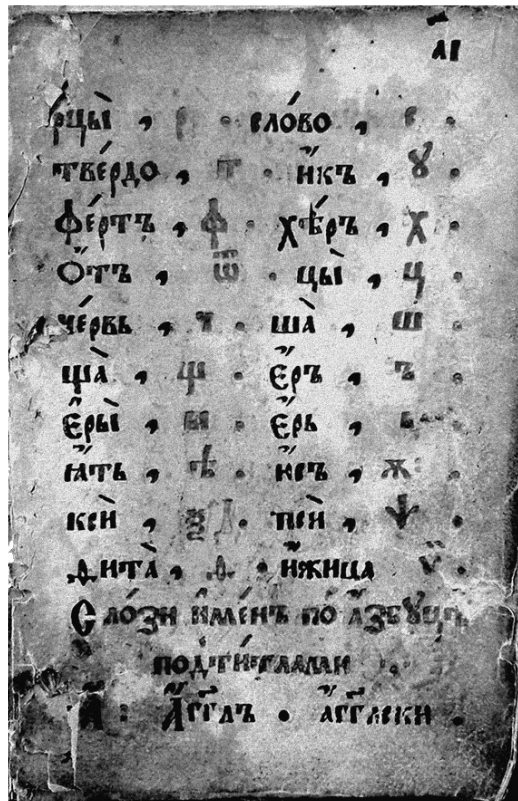 а҃і
рцы̀ , р . сло́во , с .
тве́рдо , т . и҆́къ , ꙋ .
фе́ртъ , ф . хѣ́ръ , х .
ѻ҆́тъ , ѿ . цы̀ , ц .
че́рвь , ч . ша̀ , ш .
ща̀ , щ . є҆́ръ , ъ .
є҆ры̀ , ы . є҆́рь , ь .
ꙗ҆́ть , ѣ . , ѫ .
кси́ , ѯ . пси́ , ѱ .
ѳита̀ , ѳ . и҆́жица ѵ .
Сло́зи и҆ме́нъ по а҆́збꙋцѣ
под̾ ти́тлами .
А҆ : А҆́гг҃лъ . а҆́гг҃лски .